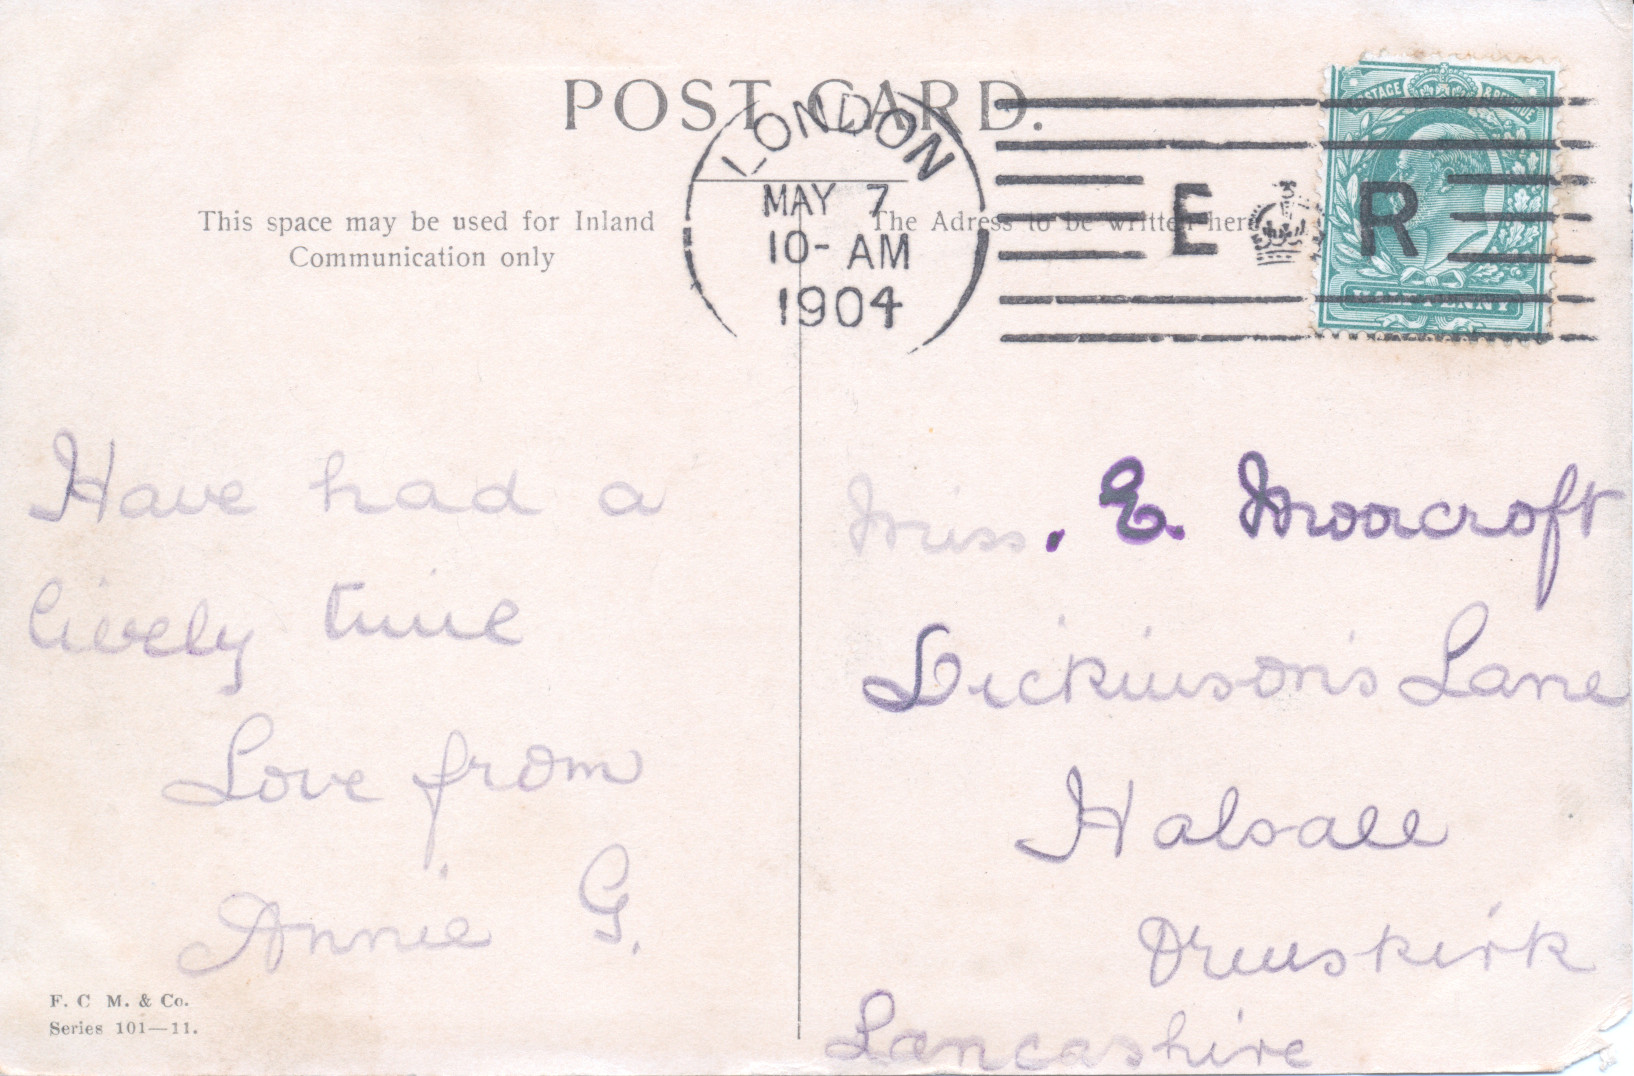 POST CARD.
LONDON
MAY 7
10- AM
1904
E R
POSTAGE & REVENUE
HALFPENNY
This space may be used for Inland
Communication only
The Adress to be written here
Have had a
lively time
Love from
Annie G.
Miss. E. Moorcroft
Dickinson's Lane
Halsall
Ormskirk
Lancashire
F. C M. & Co.
Series 101—11.